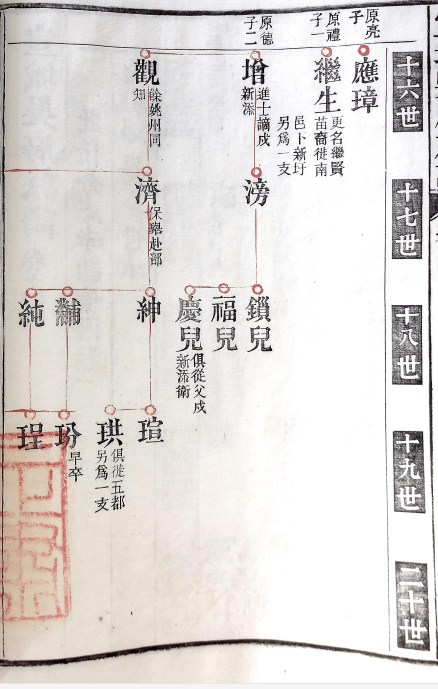 十六世
十七世
十八世
十九世
二十世
原亮
子
應璋
原禮
子一
繼生
更名繼賢
苗裔徙南
邑卜新圩
另爲一支
原德
子二
增
進士謫戍
新添
觀
餘姚州同
知
滂
濟
保舉赴部
鎖兒
福兒
慶兒
俱從父戍
新添衛
紳
黼
純
瑄
珙
俱徙五都
另爲一支
玢
早卒
珵